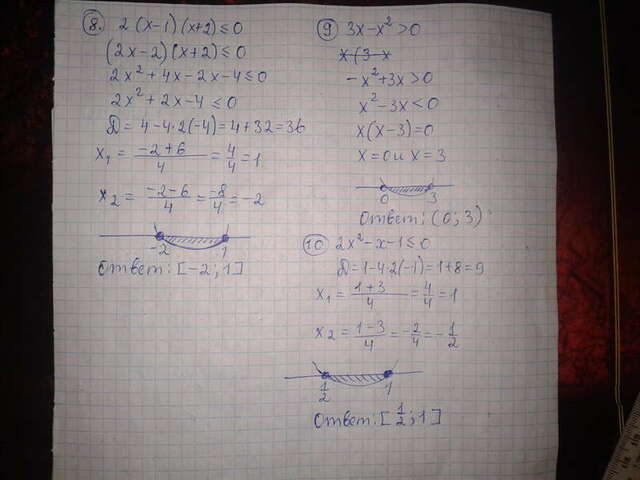 8. 2(x-1)(x+2)≤0
(2x-2)(x+2)≤0
2x²+4x-2x-4≤0
2x²+2x-4≤0
D=4-4·2(-4)=4+32=36
x₁=(-2+6)/4=4/4=1
x₂=(-2-6)/4=-8/4=-2
-2 1
Ответ: [-2;1]
9 3x-x²>0
x(3-x
-x²+3x>0
x²-3x<0
x(x-3)=0
x=0 и x=3
0 3
Ответ: (0;3)
10 2x²-x-1≤0
D=1-4·2(-1)=1+8=9
x₁=(1+3)/4=4/4=1
x₂=(1-3)/4=-2/4=-1/2
1/2 1
Ответ: [1/2;1]